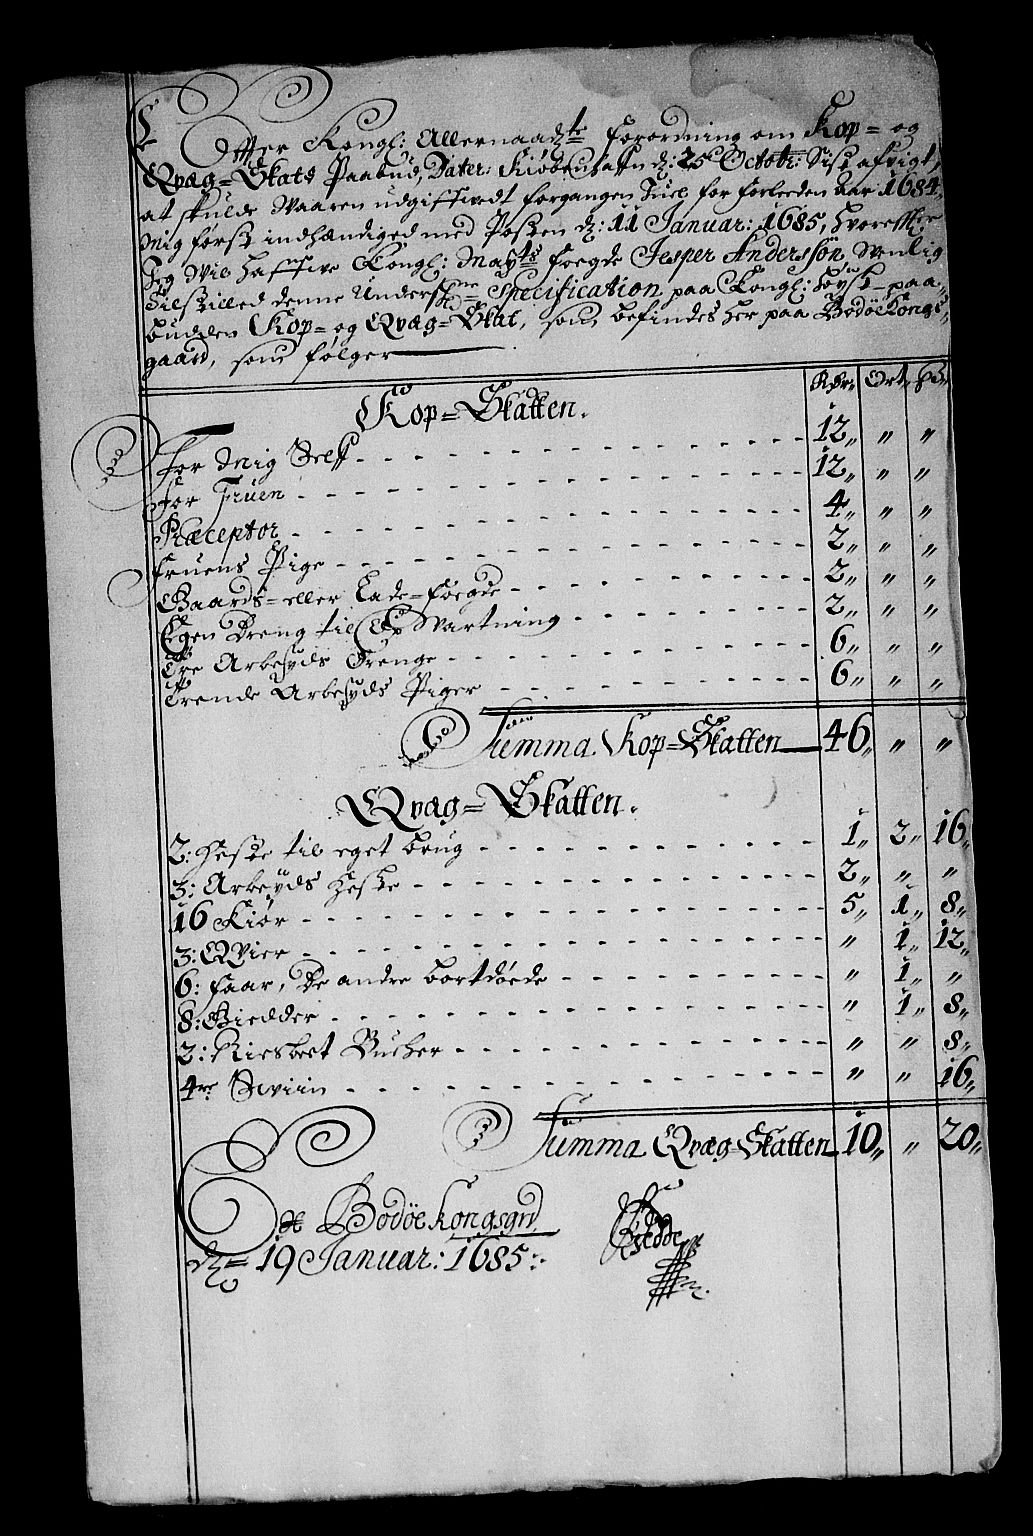 Effter Kongl: Allernaadte forordning om Kop= og
Qvæg=Skatt Paabud, Dater: Kiøbenhaffn d: 25 Octobr: Sist afvigt,
at skulde Waaren udgiffvedt forgangen Juel for forleeden Aar 1684,
Mig først indhændiged med Posten d: 11 Januar: 1685, hvoreffter
Jeg Vil haffve Kongl: Mayts foegde Jesper Anderssøn Venlig
tilstilled denne Underschne Specification paa Kongl: høyst=paa,,
budden Kop= og Qvæg=Skat, som befindes her paa Bodöe Kongs,,
gaard, som følger
Rdr: Ort, ß,
Kop=Skatten.
For Mig Self - - - 12,, ,, ,,
For Fruen - - - 12,, ,, ,,
Præceptor - - - 4,, ,, ,,
Fruens Pige - - - 2,, ,, ,,
Gaards=eller Lade=foegde - - - 2,, ,, ,,
Egen Dreng til Op Vartning - - - 2,, ,, ,,
Tre Arbeyds Drenge - - - 6,, ,, ,,
Trende Arbeyds Piger - - - 6,, ,, ,,
Summa Kop=Skatten 46,, ,, ,,
Qvæg=Skatten.
2: Heste til eget brug - - - 1,, 2,, 16,,
3: Arbeyds Heste - - - 2,, ,, ,,
16 Kiör - - - 5,, 1,, 8,,
3: Qvier - - - ,, 1,, 12,,
6: faar, De andre bortdöede - - - ,, 1,, ,,
8: Giedder - - - ,, 1,, 8,,
2: Bucher - - - ,, ,, 8,,
4re Sviin - - - ,, ,, 16,,
Summa Qvæg=Skatten 10,, ,, 20,,
Bodöe Kongsgrd
d: 19 Januar: 1685: